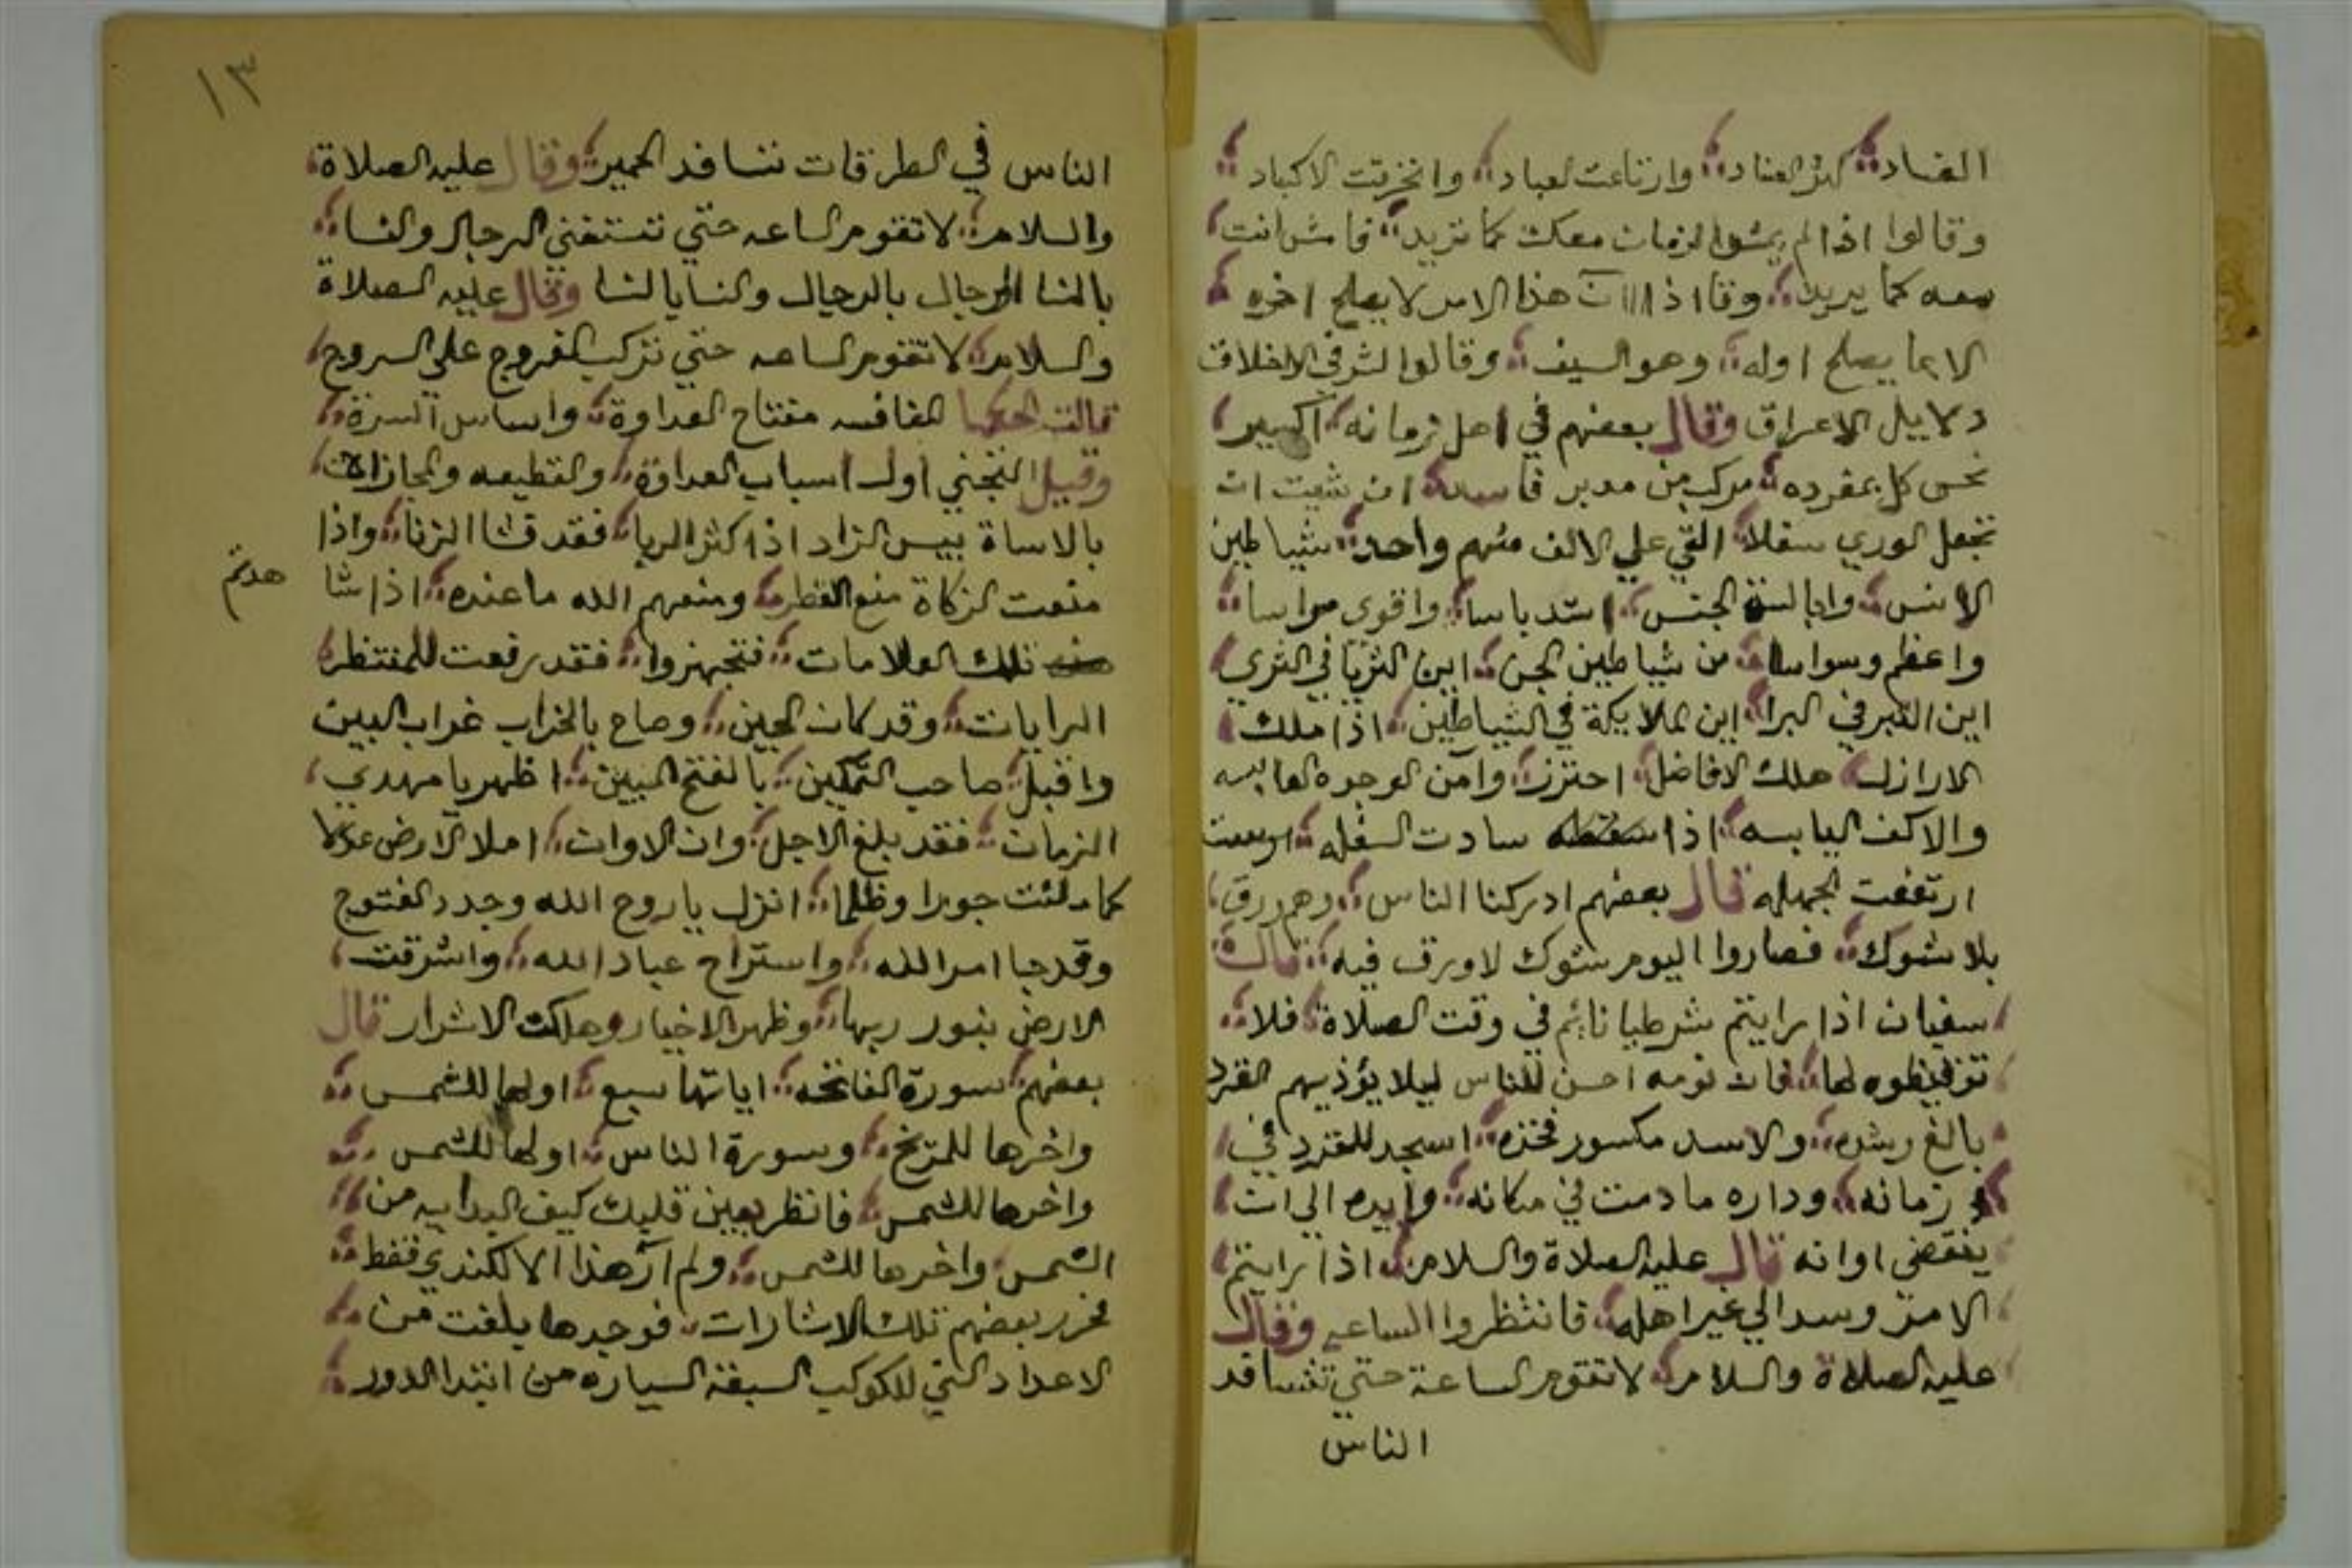 الفساد كثر العناد وارتاعت العباد وانخرقت الاكباد
وقالوا اذا لم يمش الزمان معك كما تريد فامش انت
معه كما يريد هذا الامر لا يصلح اخره
الا بما يصلح اوله وهو السيف وقالوا الاخلاق
دلايل الاعراق وقال بعضهم في اهل زمانه اكسير
نحس كل بمفرده مركب من مدبر فاسد ان شيت ان
تجعل الوري سفلا القي علي الالف منهم واحد شياطين
الانس وابالسة الجنس اشد باسا واقوي مراسا
واعظم وسواسا من شياطين الجن اين الثريا في الثري
اين التبر في البرا اين الملايكة في الشياطين اذا ملك
الارازل هلك الافاضل احترز وآمن الوجوه العابسه
والاكف اليابسه اذا سادت السفله
ارتفعت الجهله قال بعضهم ادركنا الناس وهم ورق
بلا شوك فصاروا اليوم شوك لا ورق فيه قال
سفيان اذا رايتم شرطيا نائم في وقت الصلاة فلا
توقيظوه لها فان نومه احسن للناس ليلا يؤذيهم القرد
بالغ رشده والاسد مكسور فخذه اسجد للقرد في
زمانه وداره ما دمت في مكانه الي ان
ينقضي اوانه قال عليه الصلاة والسلام اذا رايتم
الامر وسد الي غير اهله فانتظروا الساعه وقال
عليه الصلاة والسلام لا تقوم الساعة حتي تتسافد
الناس
١٣
الناس في الطرقات تتسافد الحمير وقال عليه الصلاة
والسلام لا تقوم الساعه حتي تستغني الرجال والنسا
بالنسا الرجال بالرجال والنسا بالنسا وقال عليه الصلاة
والسلام لا تقوم الساعه حتي تركب الفروج علي السروج
قالت الحكما المنافسه مفتاح العداوة واساس
وقيل التجني اول اسباب العداوة والقطيعه والمجازات
بالاساة بيس الزاد اذا كثر الربا فقد فشا الزنا واذا
منعت الزكاة منع القطر ومنعهم الله ما عنده اذا شا
هدتم
تلك العلامات فتجهزوا فقد رفعت للمنتظر
الرايات وقد كان الحين وصاح بالخراب غراب البين
واقبل صاحب التمكين بالفتح المبين اظهر يا مهدي
الزمان فقد بلغ الاجل وان الاوان املا الارض عدلا
كما ملئت جورا وظلما انزل يا روح الله وجدد الفتوح
وقد جا امر الله واستراح عباد الله واشرقت
الارض بنور ربها وظهر الاخيار وهلكت الاشرار قال
بعضهم سورة الفاتحه اياتها سبع اولها للشمس
واخرها للمريخ وسورة الناس اولها للشمس
واخرها للشمس فانظر بعين قلبك كيف البدايه من
الشمس واخرها للشمس ولم آر هذا الا للكندي فقط
فحرر بعضهم تلك الاشارات فوجدها بلغت من
الاعداد التي للكوكب السبعة السياره من ابتدا الدور